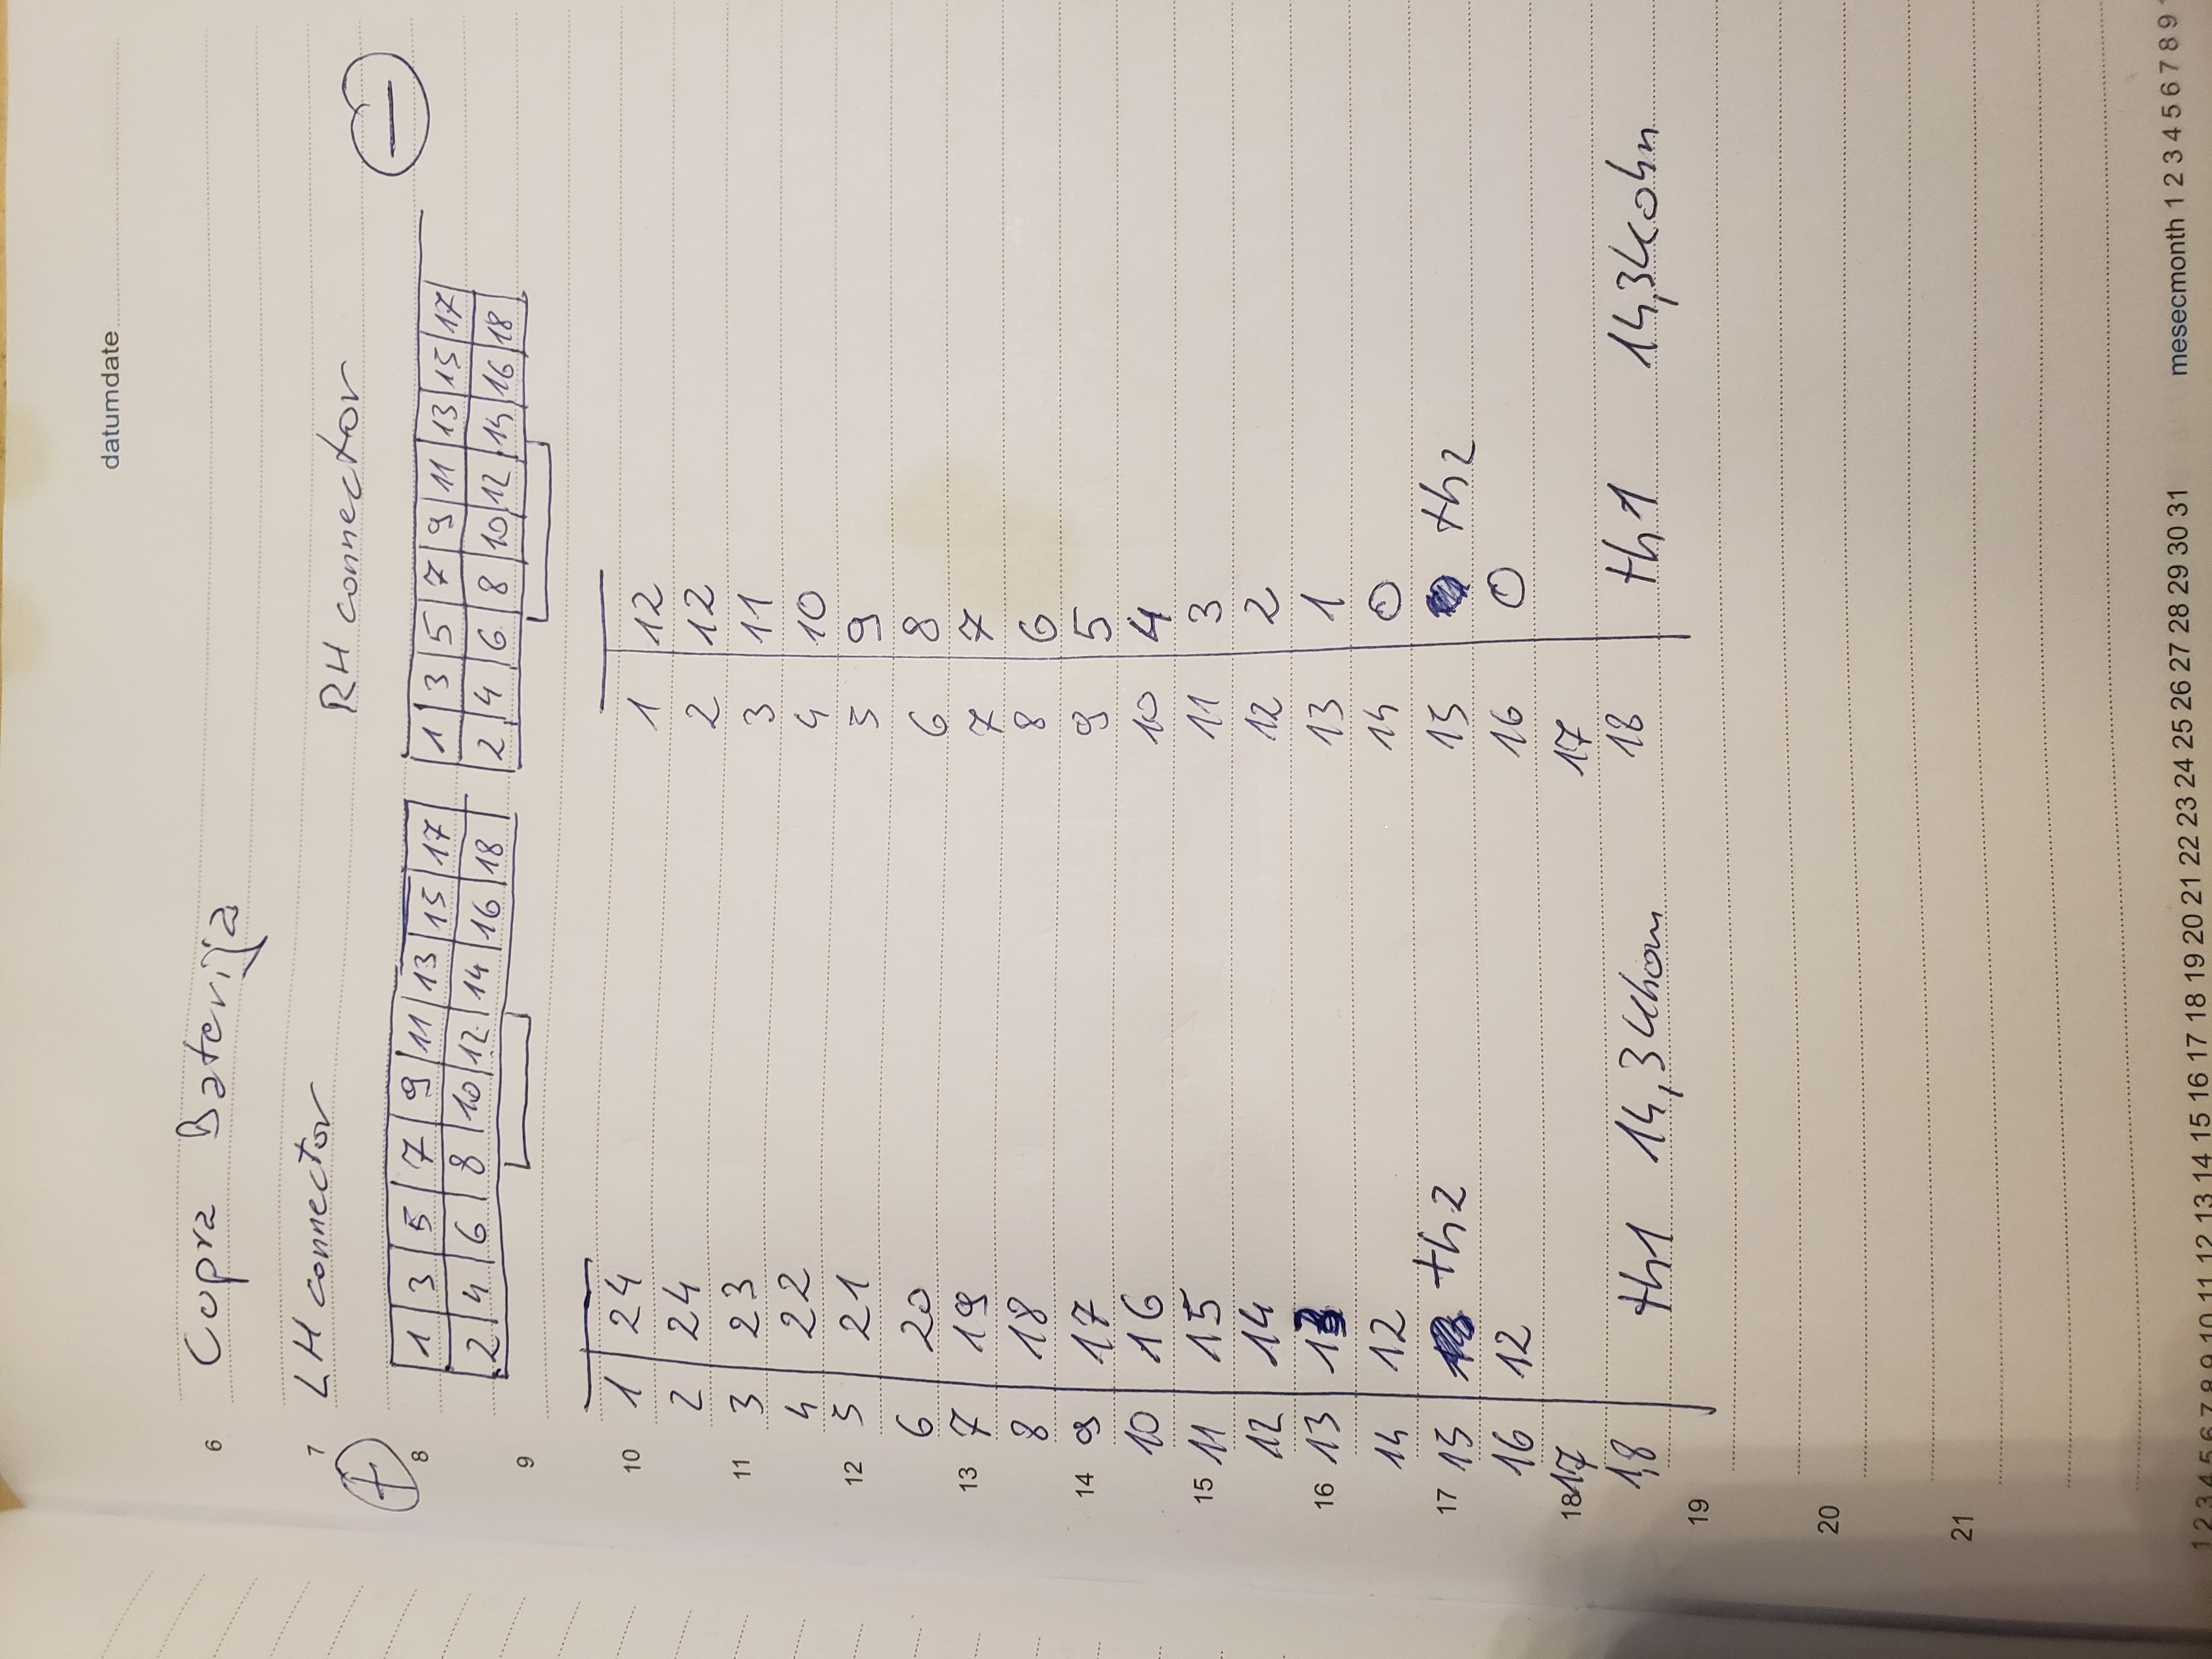 datumdate
6 Cupra Baterija
7 LH connector RH connector
+ −
8 1 3 5 7 9 11 13 15 17 1 3 5 7 9 11 13 15 17
2 4 6 8 10 12 14 16 18 2 4 6 8 10 12 14 16 18
9
10 1 24 1 12
2 24 2 12
11 3 23 3 11
4 22 4 10
12 5 21 5 9
6 20 6 8
13 7 19 7 7
8 18 8 6
14 9 17 9 5
10 16 10 4
15 11 15 11 3
12 14 12 2
16 13 13 13 1
14 12 14 0
17 15 th2 15 th2
16 12 16 0
18 17 17
18 th1 14,3khom 18 th1 14,3kohm
19
20
21
1 2 3 4 5 6 7 8 9 10 11 12 13 14 15 16 17 18 19 20 21 22 23 24 25 26 27 28 29 30 31 mesecmonth 1 2 3 4 5 6 7 8 9